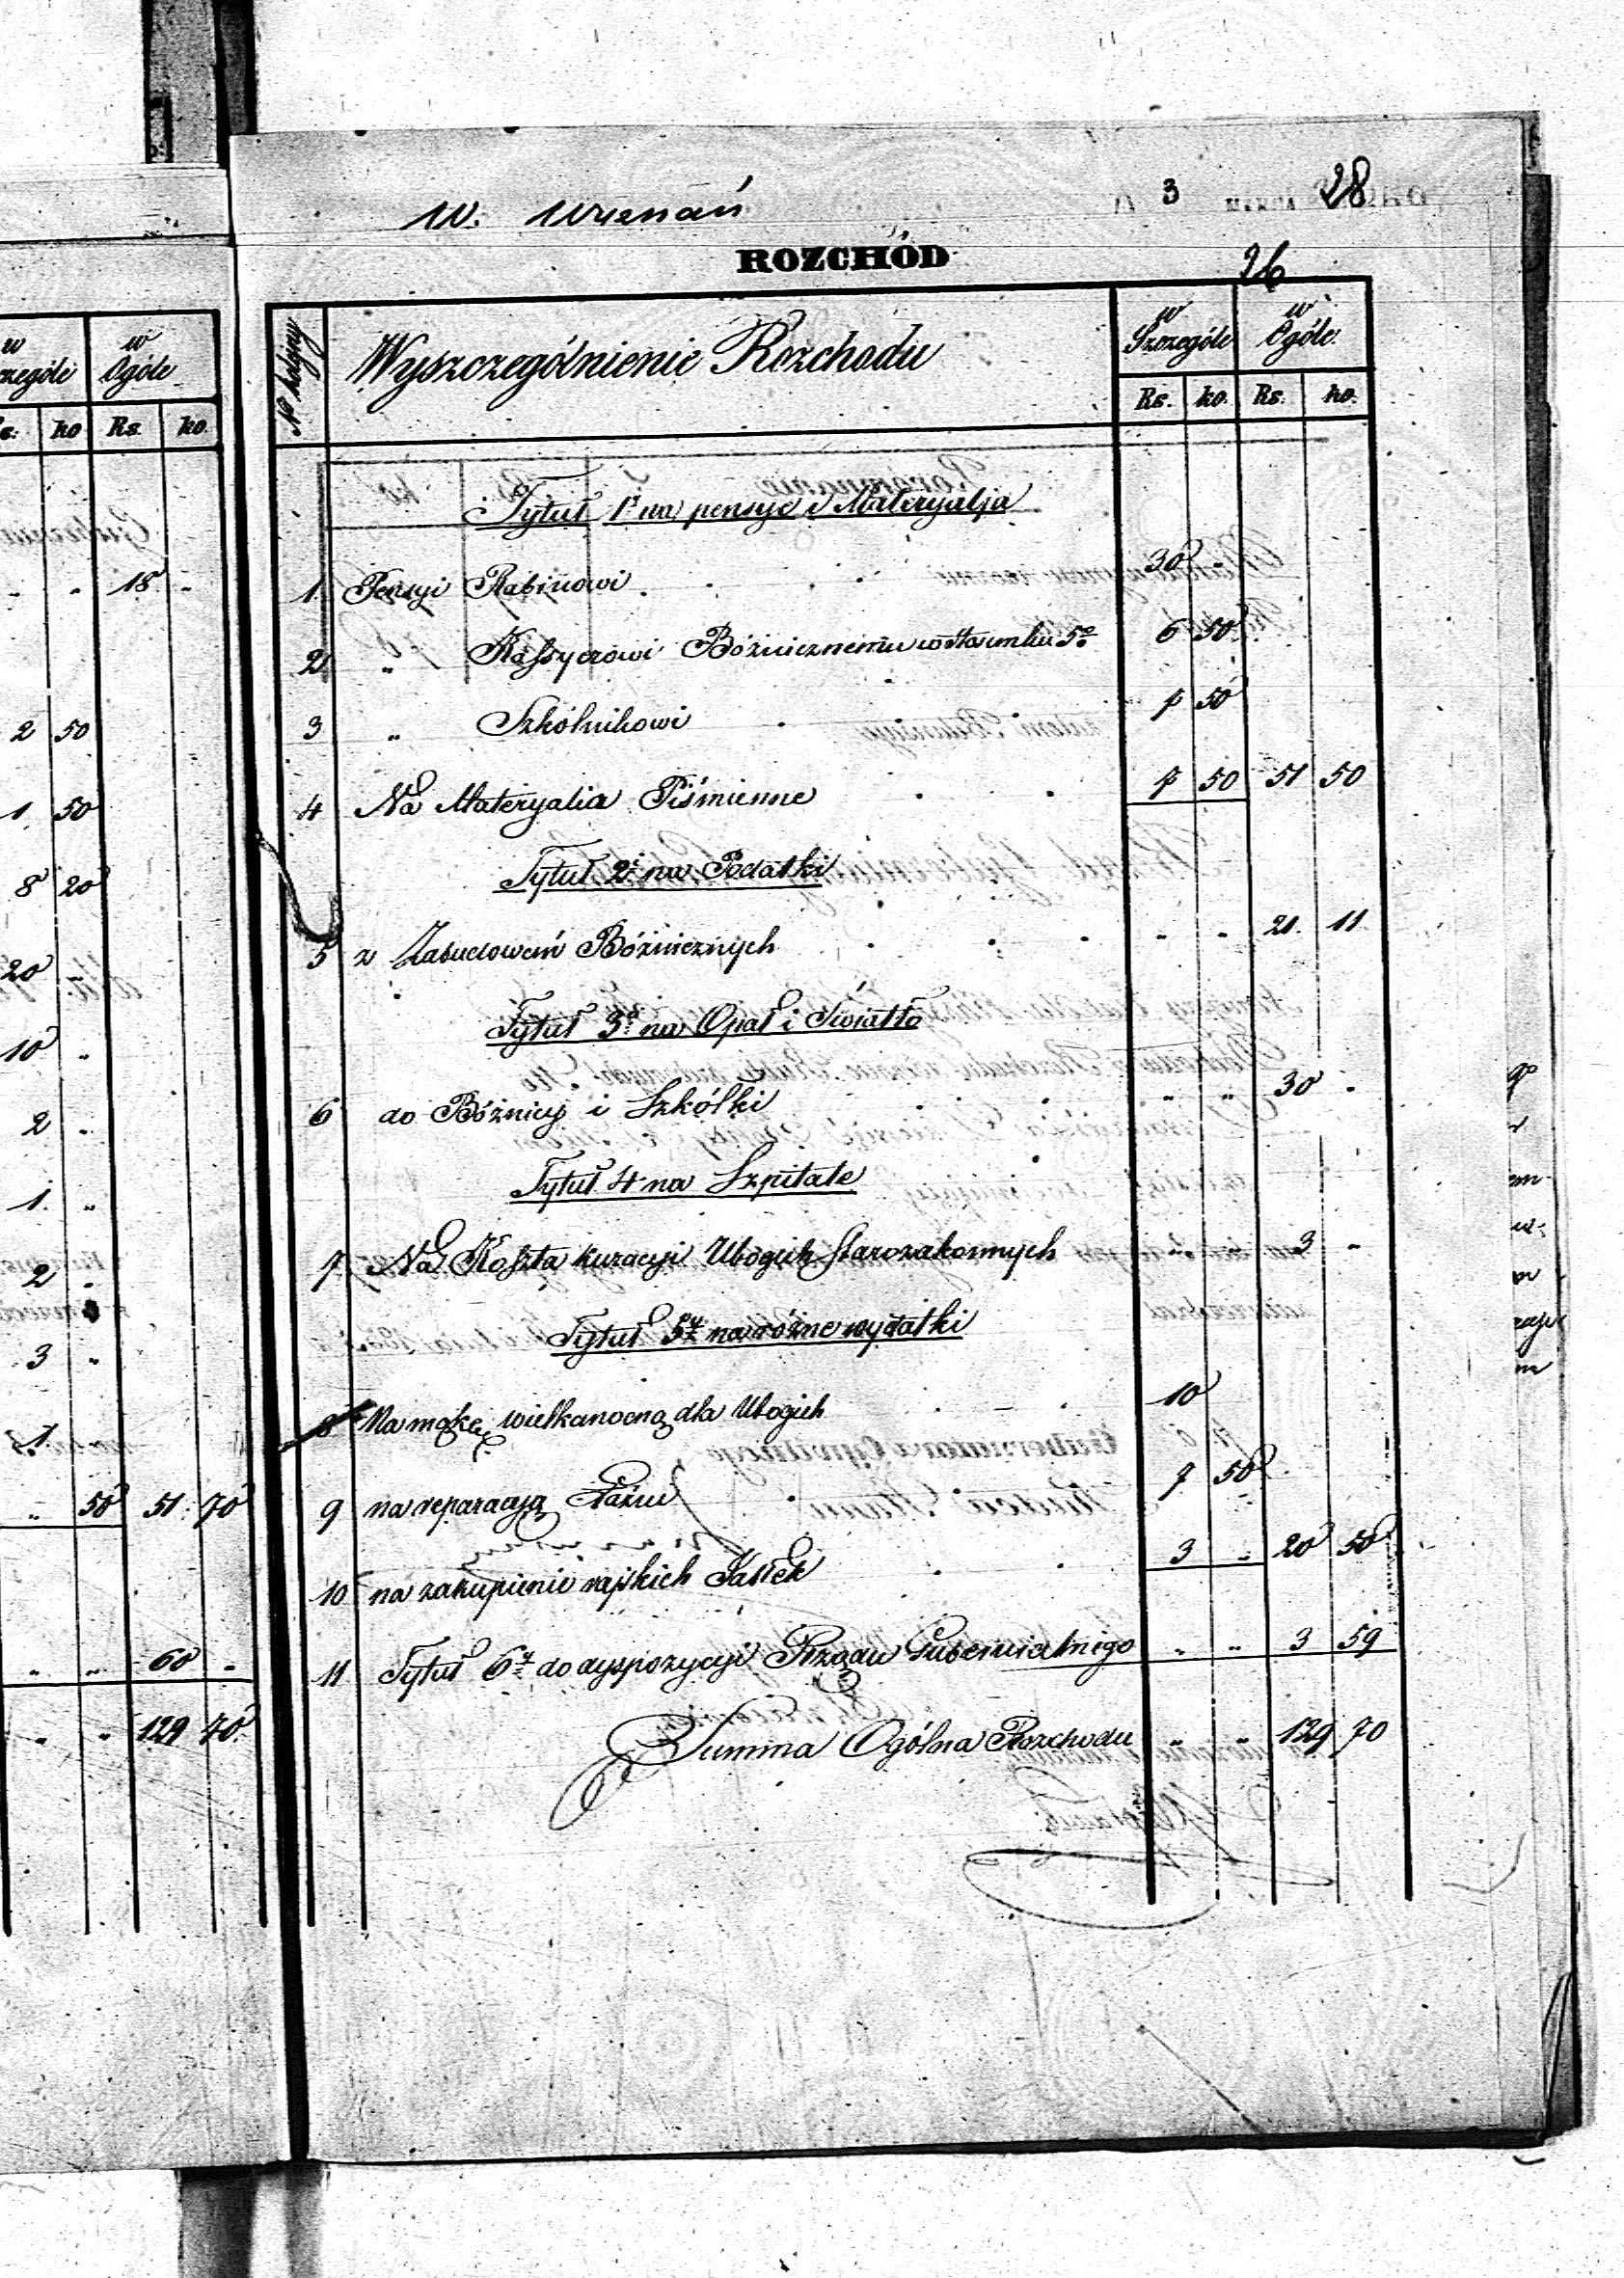 w
Ogóle
Rs.
ko
Rs.
ko.
18
2 50
1 50
8 20
20
10
2
1
2
3
1
50 51 70
60
129 70
3
28
ROZCHÓD
26
Nº kolejny
Wyszczególnienie Rozchodu
w Szczególe
w Ogóle
Rs. ko. Rs. ko.
Tytuł 1º na pensye i Materyalja
1 Pensyi Rabinowi 30 -
2 " Kassyerowi Bóżnicznemu w stosunku 5% 6 50
3 " Szkólnikowi 7 50
4 Na Materyalia Piśmienne 7 50 51 50
Tytuł 2i na Podatki
5 z Zabudowań Bóżnicznych - - 21 11
Tytuł 3i na Opał i Światło
6 do Bóżnicy i Szkółki " " 30 -
Tytuł 4 na Szpitale
7 Na Koszta kuracyi Ubogich Starozakonnych " " 3 -
Tytuł 5ty na różne wydatki
8 Na mąkę wielkanocną dla Ubogich 10
9 na reparacyją Łaźni 7 50
10 na zakupienie rajskich Jabłek 3 - 20 50
11 Tytuł 6ty do dyspozycyi Rządu Gubernialnego " " 3 59
Summa Ogólna Rozchodu " " 129 70